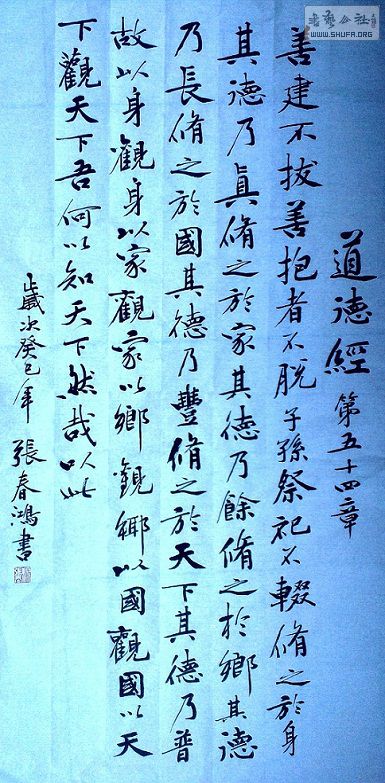 書藝公社
WWW.SHUFA.ORG
道德經 第五十四章
善建不拔善抱者不脫子孫祭祀不輟脩之於身
其德乃真脩之於家其德乃餘脩之於鄉其德
乃長脩之於國其德乃豐脩之於天下其德乃普
故以身觀身以家觀家以鄉觀鄉以國觀國以天
下觀天下吾何以知天下然哉以此
歲次癸巳年 張春鴻書